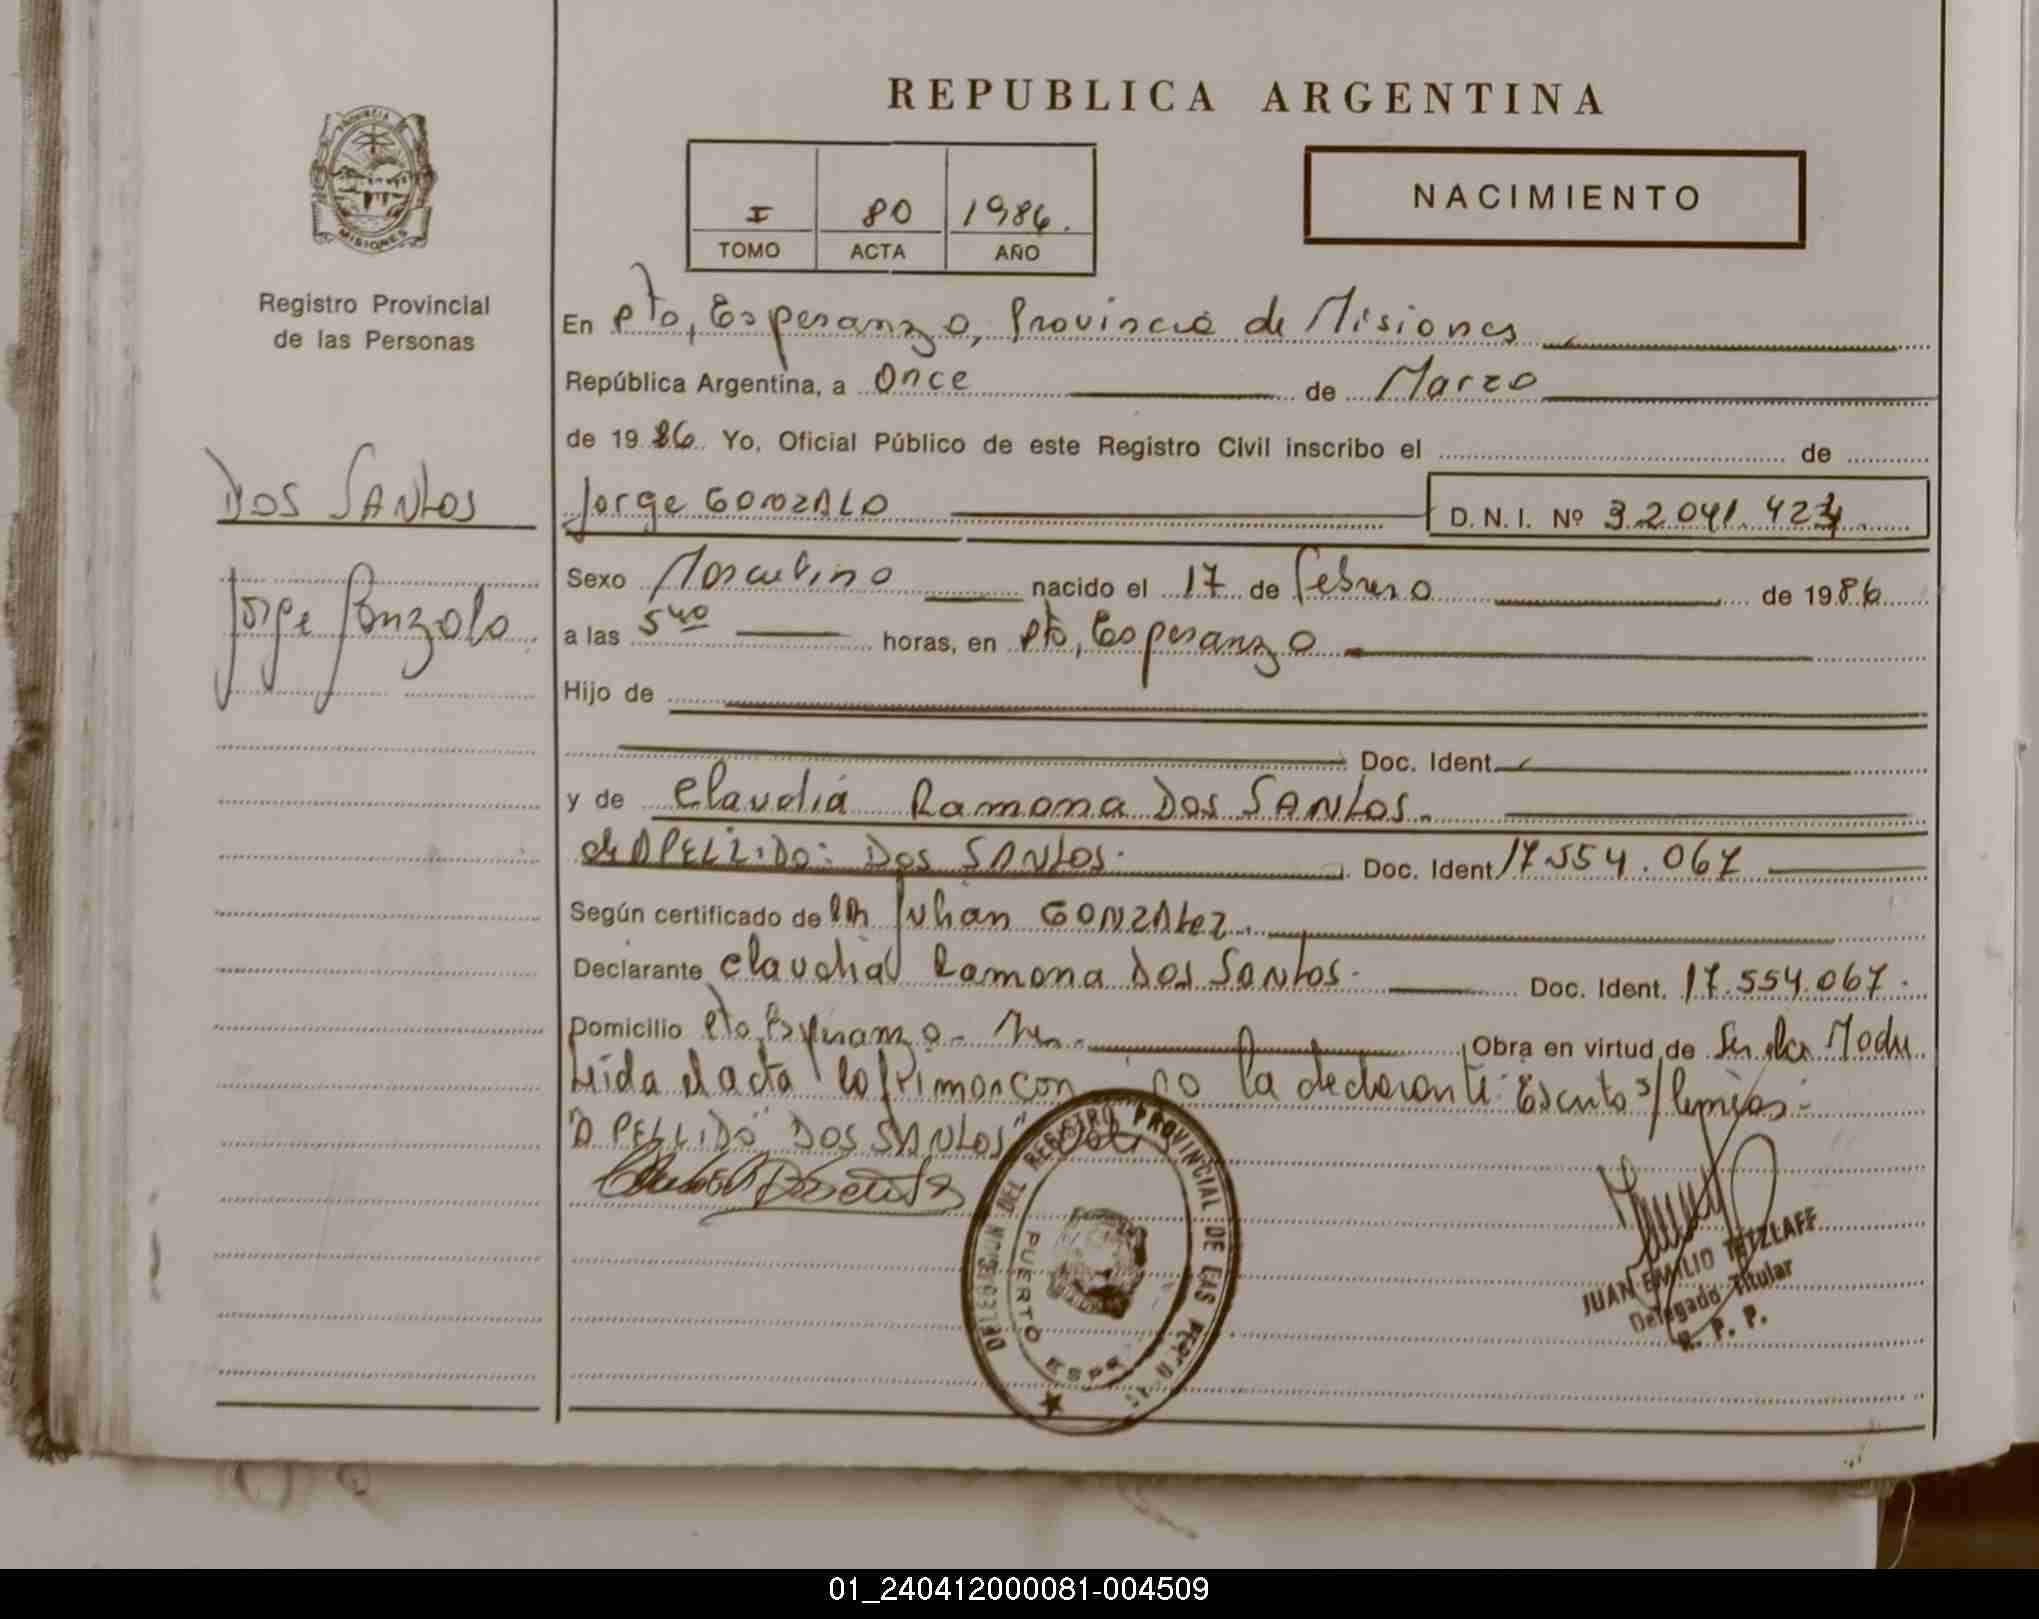 REPUBLICA ARGENTINA
PROVINCIA DE
MISIONES
Registro Provincial
de las Personas
I 80 1986.
TOMO ACTA AÑO
NACIMIENTO
DOS SANTOS
Jorge Gonzalo
En Pto, Esperanza, Provincia de Misiones
República Argentina, a Once de Marzo
de 1986. Yo, Oficial Público de este Registro Civil inscribo el de
Jorge GONZALO D. N. I. Nº 32.041.42
Sexo Masculino nacido el 17 de Febrero de 1986
a las 5 40 horas, en Pto, Esperanza
Hijo de
Doc. Ident.
y de Claudia Ramona DOS SANTOS.
de APELLIDO: DOS SANTOS. Doc. Ident. 17.554.067
Según certificado de Julian GONZALEZ
Declarante Claudia Ramona DOS SANTOS. Doc. Ident. 17.554.067.
Domicilio Pto Esperanza - Obra en virtud de Ser la Madre
Leida el acta la firman con la declarante: Escrito s/
"APELLIDO" DOS SANTOS"
DELEGACION DEL REGISTRO PROVINCIAL DE LAS PERSONAS
PUERTO ESPE
JUAN EMILIO TETZLAFF
Delegado Titular
R. P. P.
01_240412000081-004509